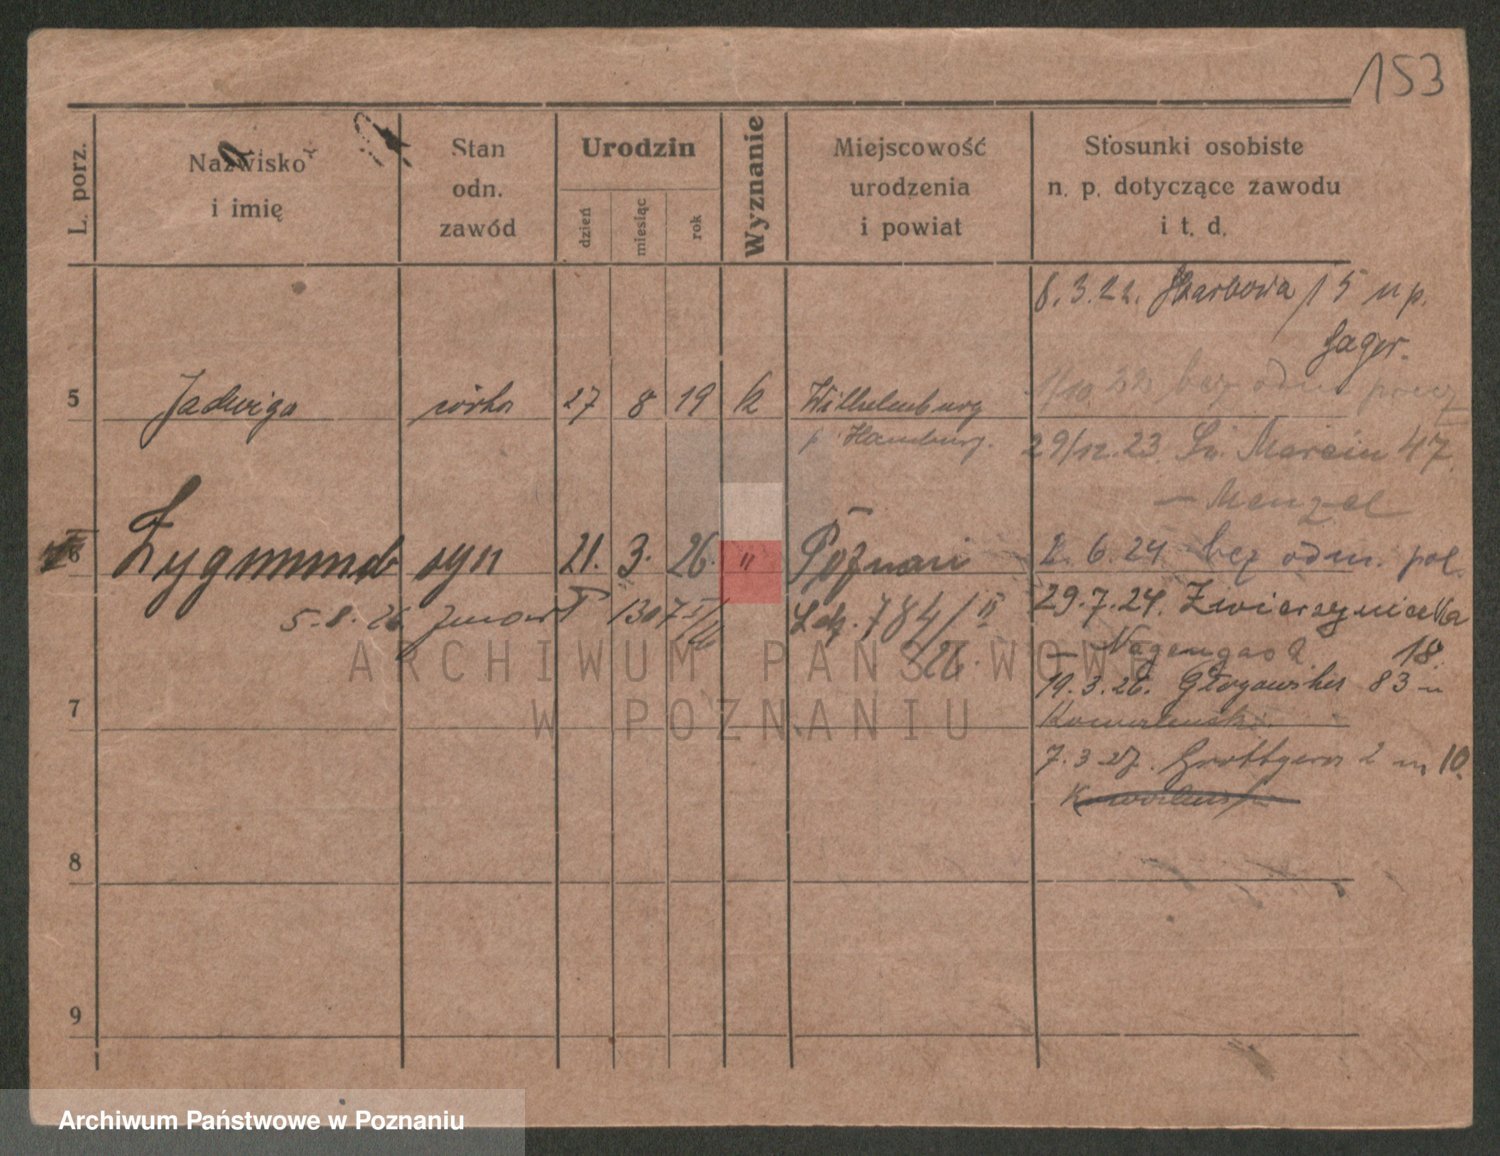 153
L. porz.
Nazwisko
i imię
Stan
odn.
zawód
Urodzin
dzień
miesiąc
rok
Wyznanie
Miejscowość
urodzenia
i powiat
Stosunki osobiste
n. p. dotyczące zawodu
i t. d.
8.3.22. Skarbowa 15 u p.
Jager.
5 Jadwiga córka 27 8 19 k Wilhelmburg
p Hamburg.
1/10.22 bez odm.
29/12.23. Św. Marcin 47
— Menzel
6 Zygmund syn 21. 3. 26. " Poznań
2.6.24 bez odm. pol.
5.8.26 1307
784/II
26.
29.7.24. Zwierzyniecka
18.
19.3.26. Głogawska 83 u
7
7.3.27. Grottgera 2 m 10.
8
9
ARCHIWUM PAŃSTWOWE
W POZNANIU
Archiwum Państwowe w Poznaniu